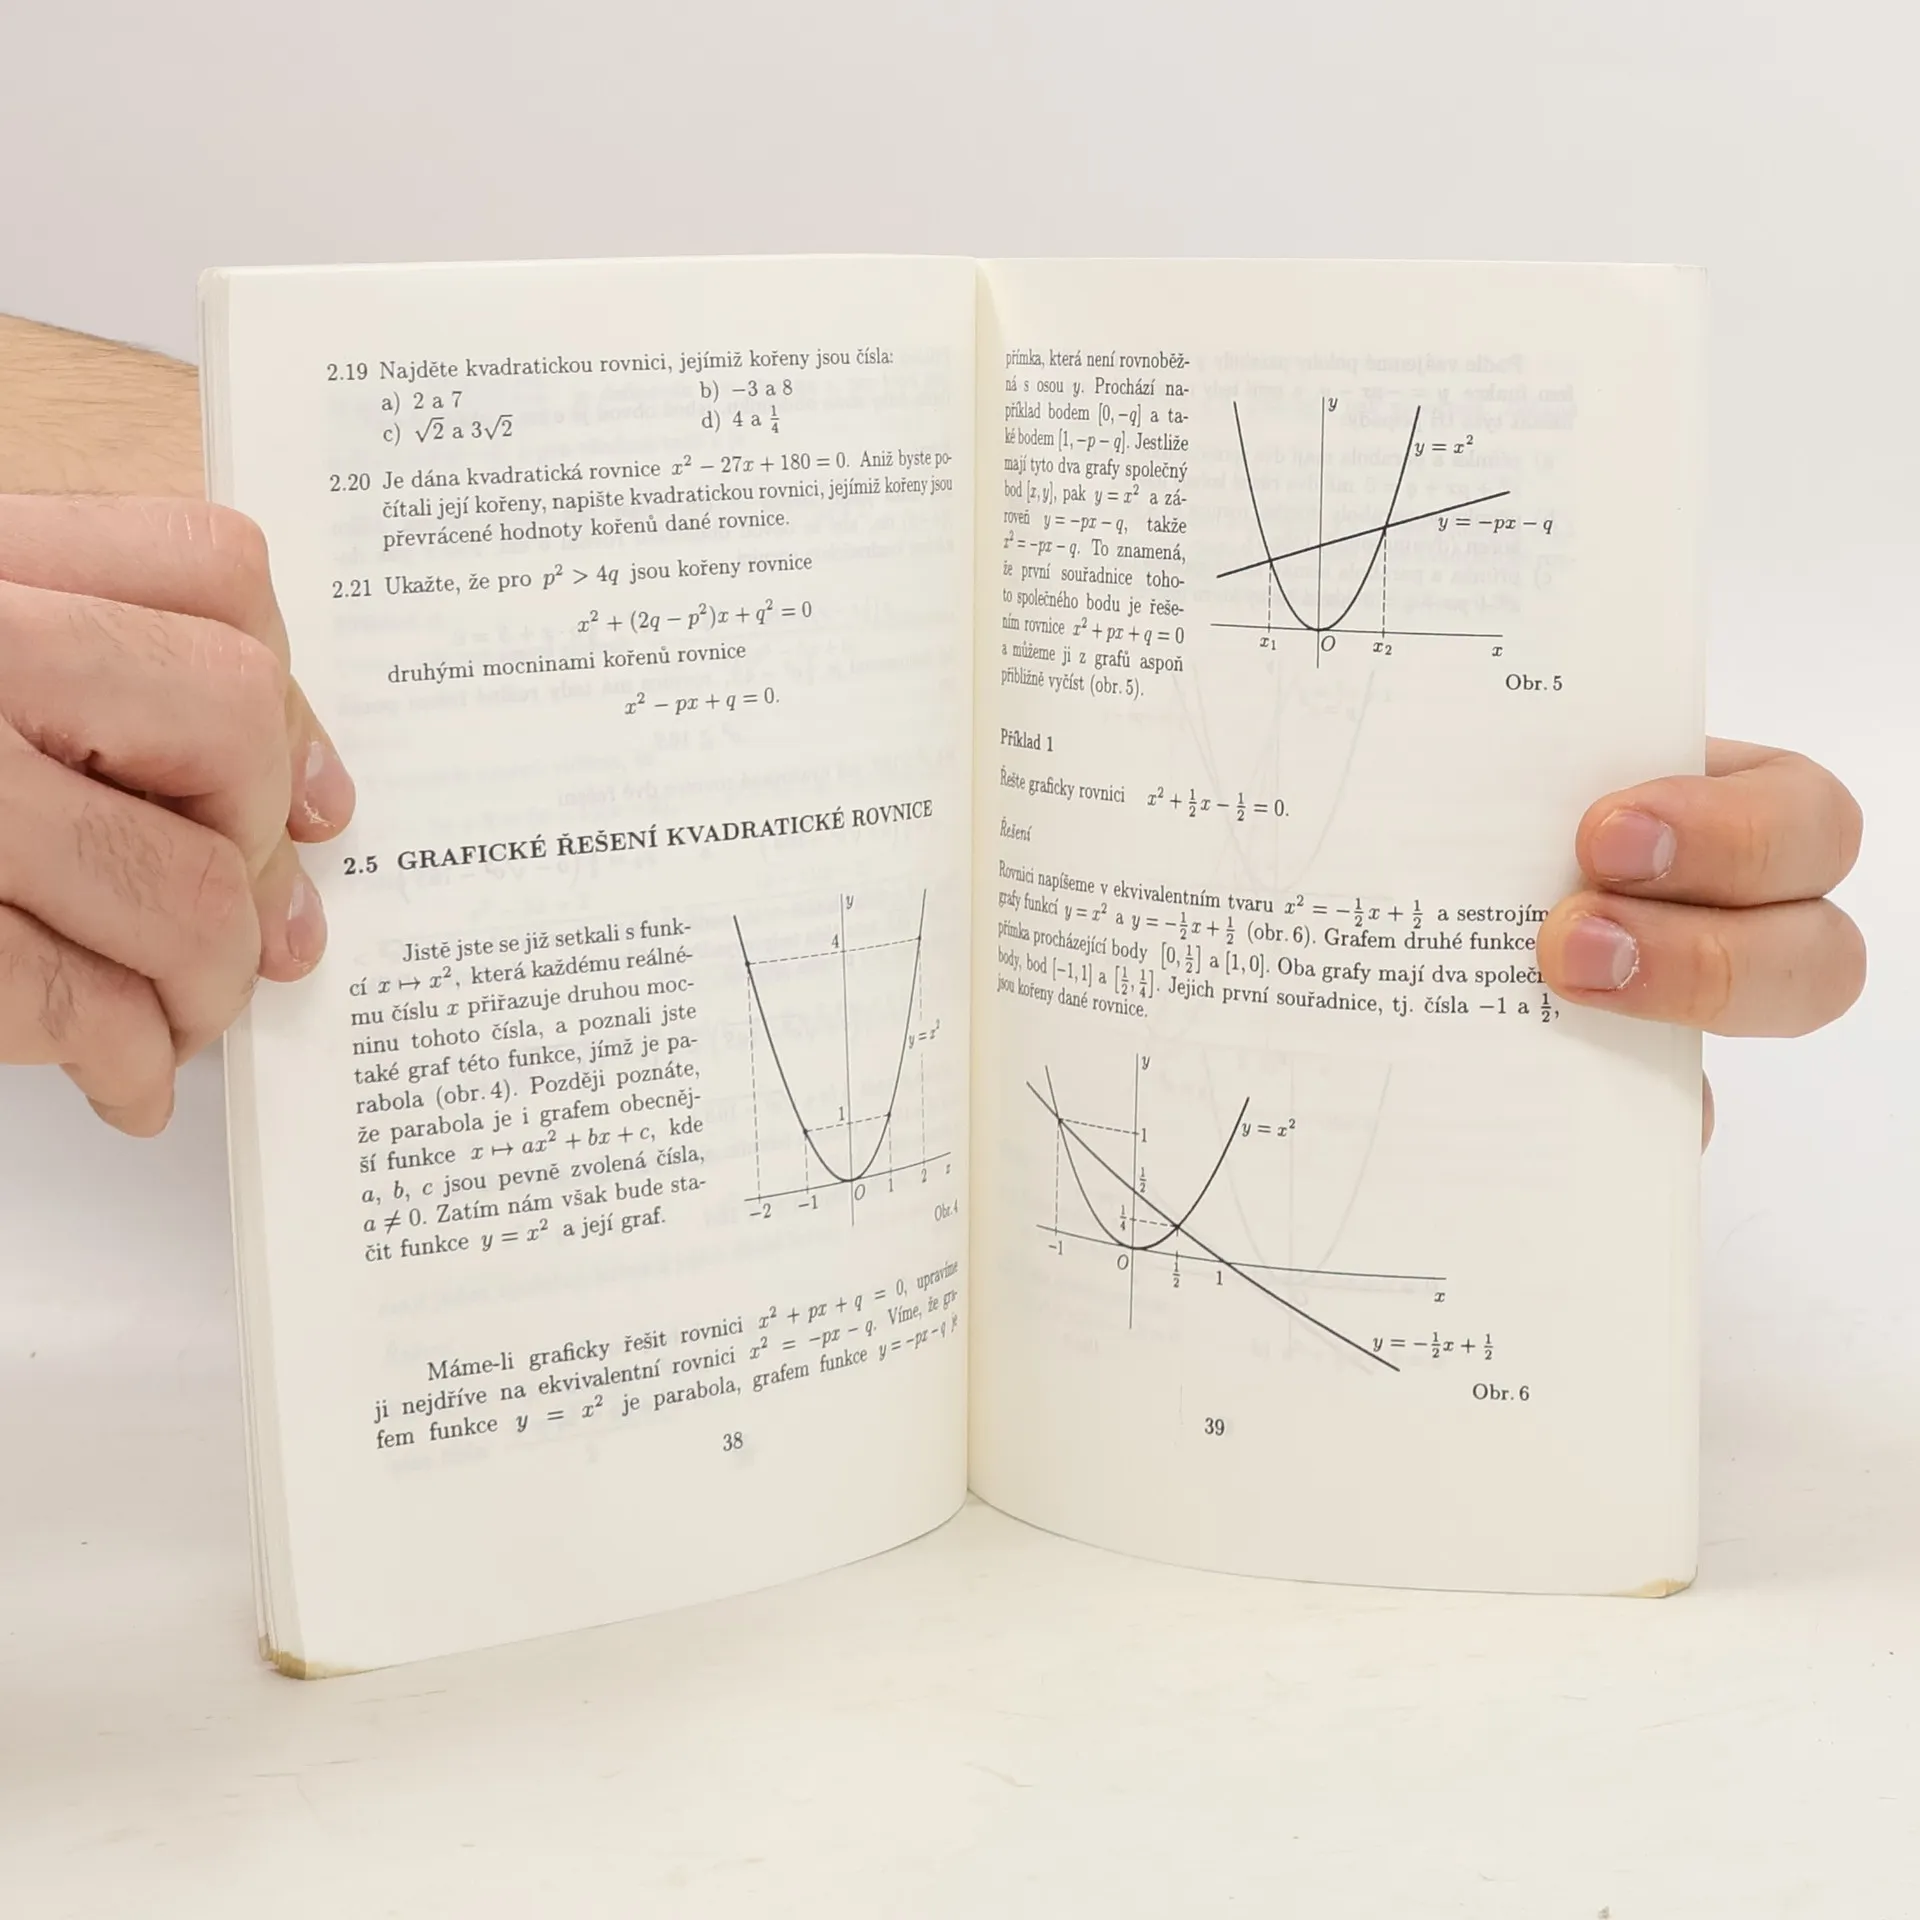 2.19 Najděte kvadratickou rovnici, jejímiž kořeny jsou čísla:
a) 2 a 7 b) −3 a 8
c) √2 a 3√2 d) 4 a 1/4
2.20 Je dána kvadratická rovnice x² − 27x + 180 = 0. Aniž byste po-
čítali její kořeny, napište kvadratickou rovnici, jejímiž kořeny jsou
převrácené hodnoty kořenů dané rovnice.
2.21 Ukažte, že pro p² > 4q jsou kořeny rovnice
x² + (2q − p²)x + q² = 0
druhými mocninami kořenů rovnice
x² − px + q = 0.
2.5 GRAFICKÉ ŘEŠENÍ KVADRATICKÉ ROVNICE
Jistě jste se již setkali s funk-
cí x ↦ x², která každému reálné-
mu číslu x přiřazuje druhou moc-
ninu tohoto čísla, a poznali jste
také graf této funkce, jímž je pa-
rabola (obr. 4). Později poznáte,
že parabola je i grafem obecněj-
ší funkce x ↦ ax² + bx + c, kde
a, b, c jsou pevně zvolená čísla,
a ≠ 0. Zatím nám však bude sta-
čit funkce y = x² a její graf.
y
4
y = x²
1
−2 −1 O 1 2 x
Obr. 4
Máme-li graficky řešit rovnici x² + px + q = 0, upravíme
ji nejdříve na ekvivalentní rovnici x² = −px − q. Víme, že gra-
fem funkce y = x² je parabola, grafem funkce y = −px − q je
38
přímka, která není rovnoběž-
ná s osou y. Prochází na-
příklad bodem [0, −q] a ta-
ké bodem [1, −p − q]. Jestliže
mají tyto dva grafy společný
bod [x, y], pak y = x² a zá-
roveň y = −px − q, takže
x² = −px − q. To znamená,
že první souřadnice toho-
to společného bodu je řeše-
ním rovnice x² + px + q = 0
a můžeme ji z grafů aspoň
přibližně vyčíst (obr. 5).
y
y = x²
y = −px − q
x₁ O x₂ x
Obr. 5
Příklad 1
Řešte graficky rovnici x² + 1/2 x − 1/2 = 0.
Řešení
Rovnici napíšeme v ekvivalentním tvaru x² = −1/2 x + 1/2 a sestrojím
grafy funkcí y = x² a y = −1/2 x + 1/2 (obr. 6). Grafem druhé funkce
přímka procházející body [0, 1/2] a [1, 0]. Oba grafy mají dva společn
body, bod [−1, 1] a [1/2, 1/4]. Jejich první souřadnice, tj. čísla −1 a 1/2,
jsou kořeny dané rovnice.
y
1
y = x²
1/2
1/4
−1 O 1/2 1 x
y = −1/2 x + 1/2
Obr. 6
39